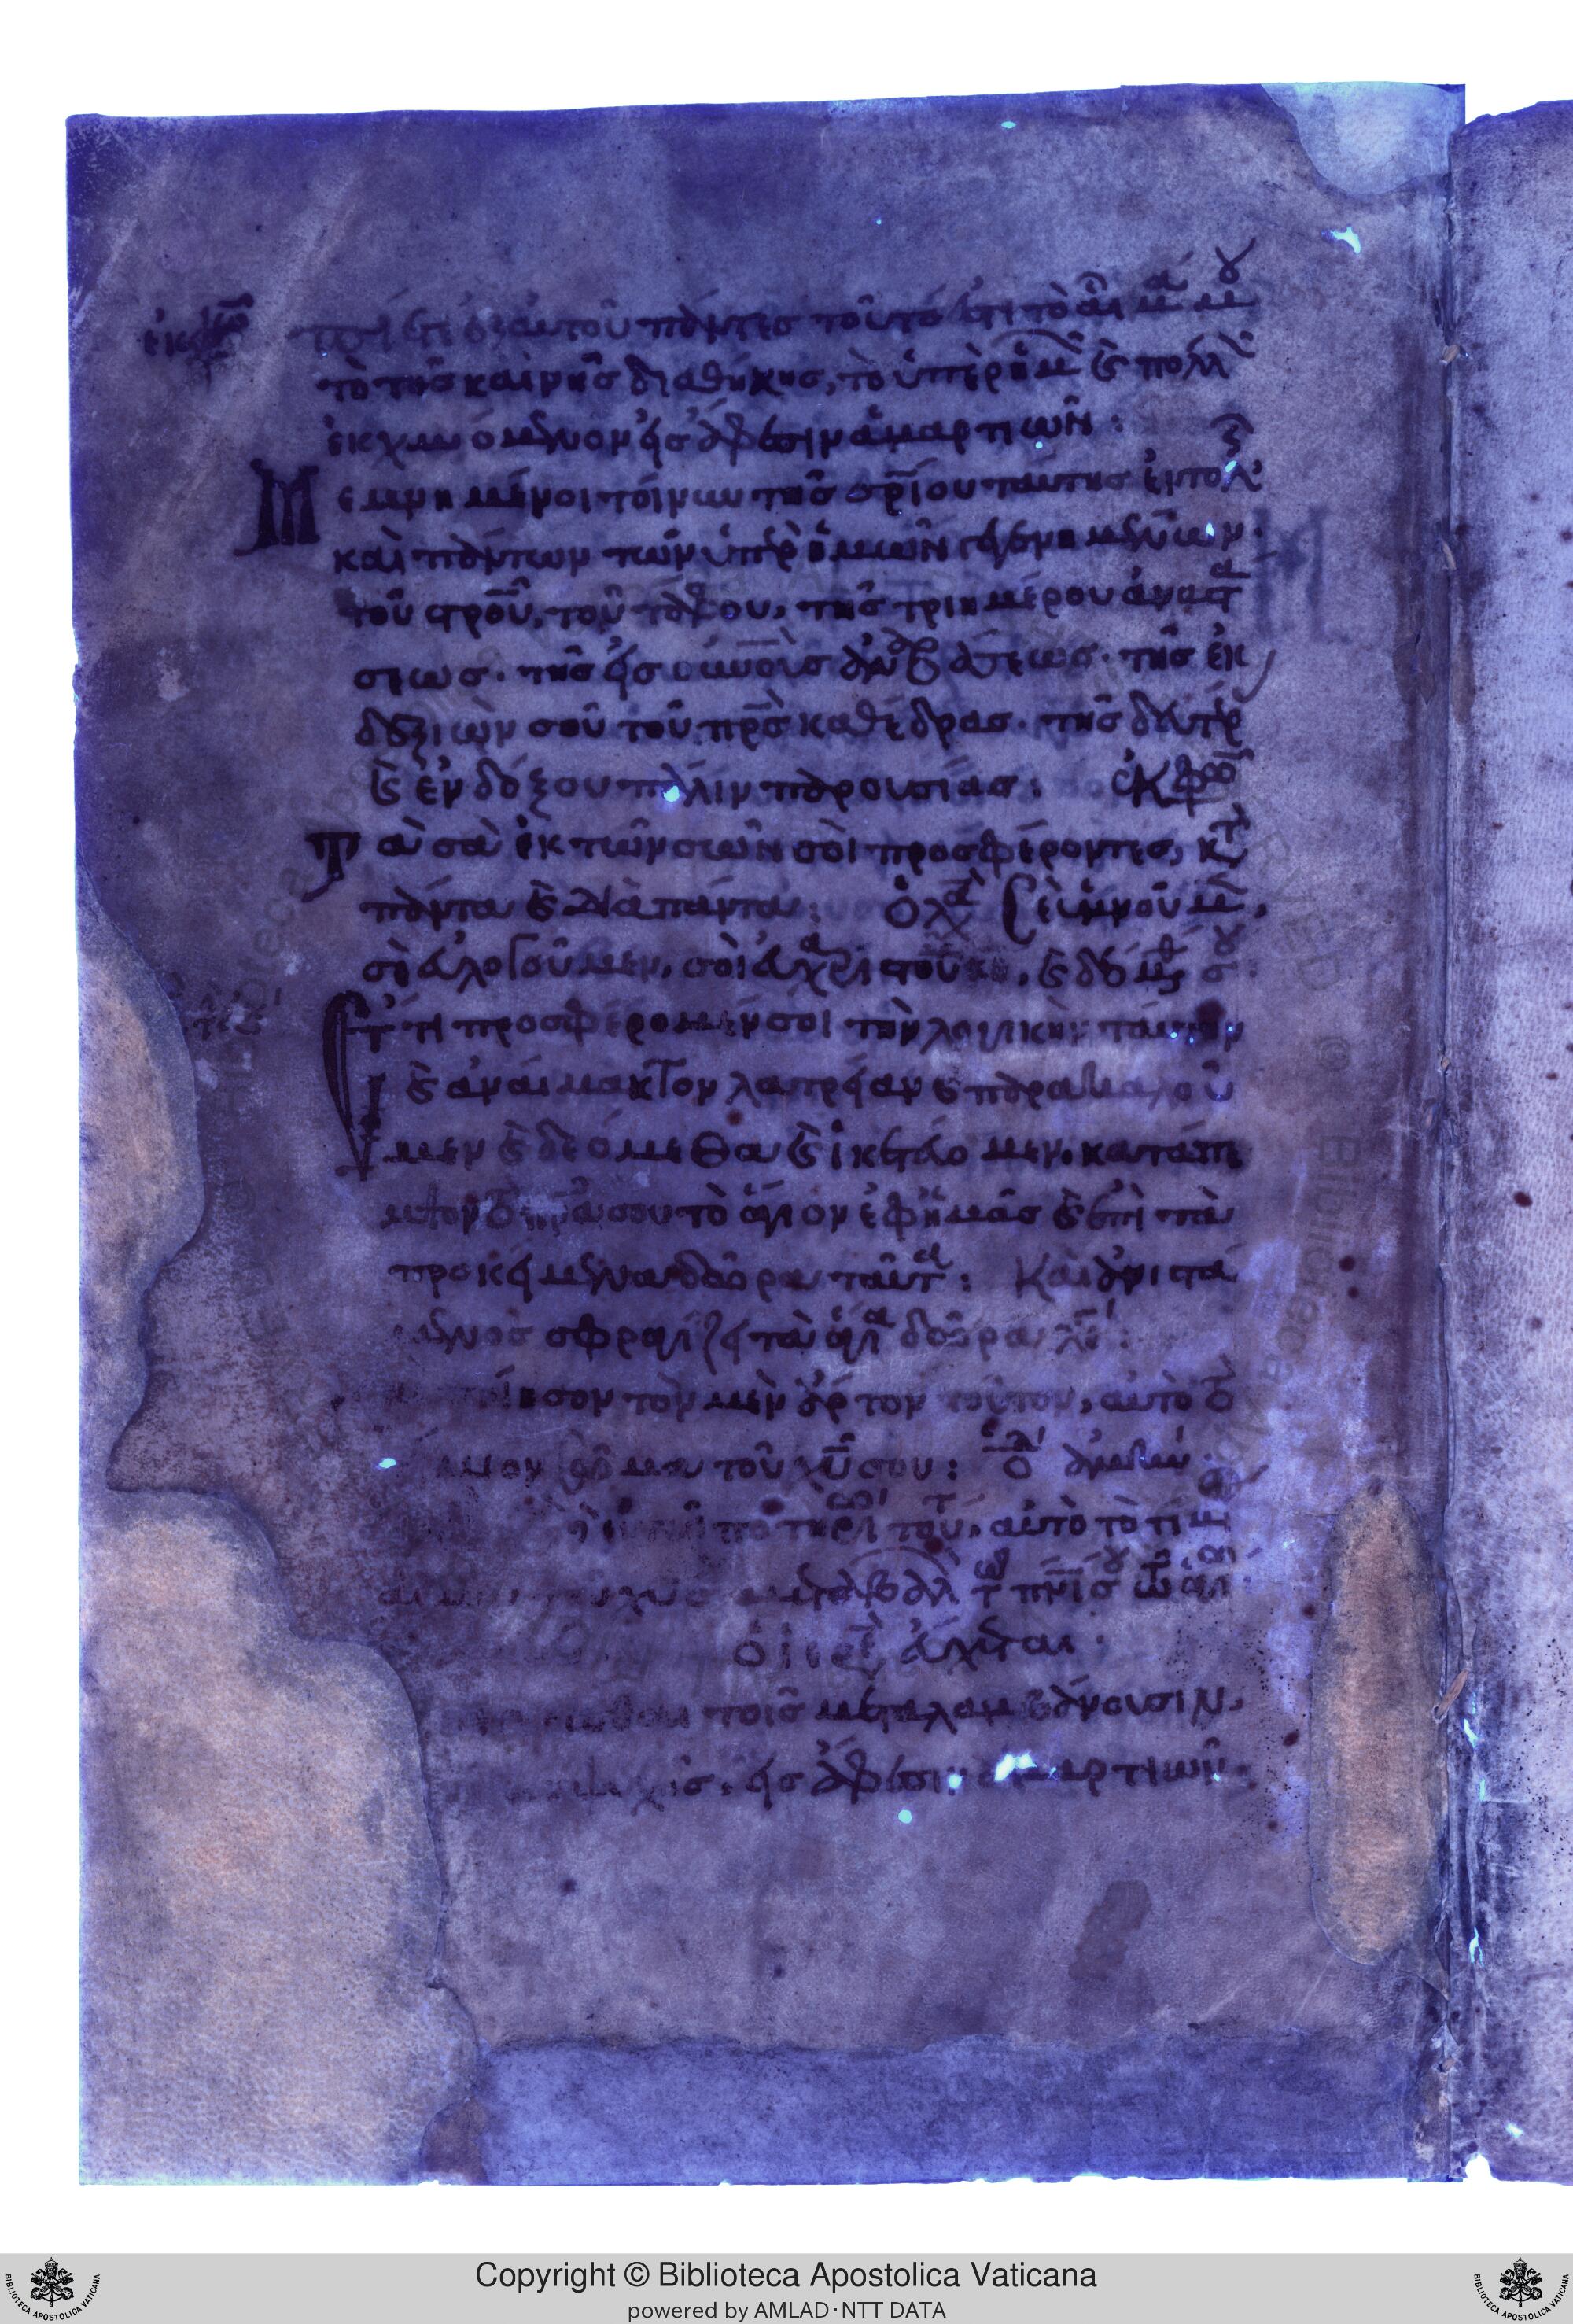 πίετε ἐξ αὐτοῦ πάντες τοῦτό ἐστι τὸ αἷμά μου
τὸ τῆς καινῆς διαθήκης, τὸ ὑπὲρ ὑμῶν καὶ πολλῶν
ἐκχυνόμενον εἰς ἄφεσιν ἁμαρτιῶν :
Μεμνημένοι τοίνυν τῆς σωτηρίου ταύτης ἐντολῆς
καὶ πάντων τῶν ὑπὲρ ἡμῶν γεγενημένων.
τοῦ στροῦ, τοῦ τάφου, τῆς τριημέρου ἀναστά
σεως. τῆς εἰς οὐνοὺς ἀναβάσεως. τῆς ἐκ
δεξιῶν σοῦ τοῦ πρς καθέδρας. τῆς δευτέρ
καὶ ἐνδόξου πάλιν παρουσίας : ἐκφω
Τὰ σὰ ἐκ τῶν σῶν σοὶ προσφέροντες, κατὰ
πάντα καὶ διὰ πάντα : ὁ λα Σὲ ὑμνοῦμεν,
σὲ εὐλογοῦμεν, σοὶ εὐχαριστοῦμεν, καὶ δεόμεθά σου
Ἔτι προσφέρομέν σοι τὴν λογικὴν ταύτην
καὶ ἀναίμακτον λατρείαν καὶ παρακαλοῦ
μεν καὶ δεόμεθα καὶ ἱκετεύομεν. κατάπε
μψον τὸ πνα σου τὸ ἅγιον ἐφ' ἡμᾶς καὶ ἐπὶ τὰ
προκείμενα δῶρα ταῦτα : Καὶ ἀνιστά
μενος σφραγίζει τὰ ἅγια δῶρα λέγ :
ποίησον τὸν μὲν ἄρτον τοῦτον, αὐτὸ τὸ
τίμιον σῶμα τοῦ χυ σου : ὁ λα ἀμήν :
τὸ δὲ ἐν τῷ ποτηρίῳ τούτῳ, αὐτὸ τὸ τίμιον
αἷμα τοῦ χυ σου μεταβαλὼν τῷ πνι σου τῷ ἁγίῳ
ὁ ἱερεὺς εὔχεται :
γενέσθαι τοῖς μεταλαμβάνουσιν,
ψυχῆς, εἰς ἄφεσιν ἁμαρτιῶν.
Copyright © Biblioteca Apostolica Vaticana
powered by AMLAD·NTT DATA